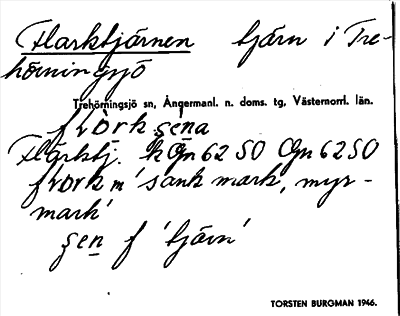 Flarktjärnen tjärn i Tre-
hörningsjö
Trehörningsjö sn, Ångermanl. n. doms. tg, Västernorrl. län.
flòrksęna
Flärktj. kGn 62 SO Gn 62 SO
flork m 'sank mark, myr-
mark'
sęn f 'tjärn'
TORSTEN BURGMAN 1946.